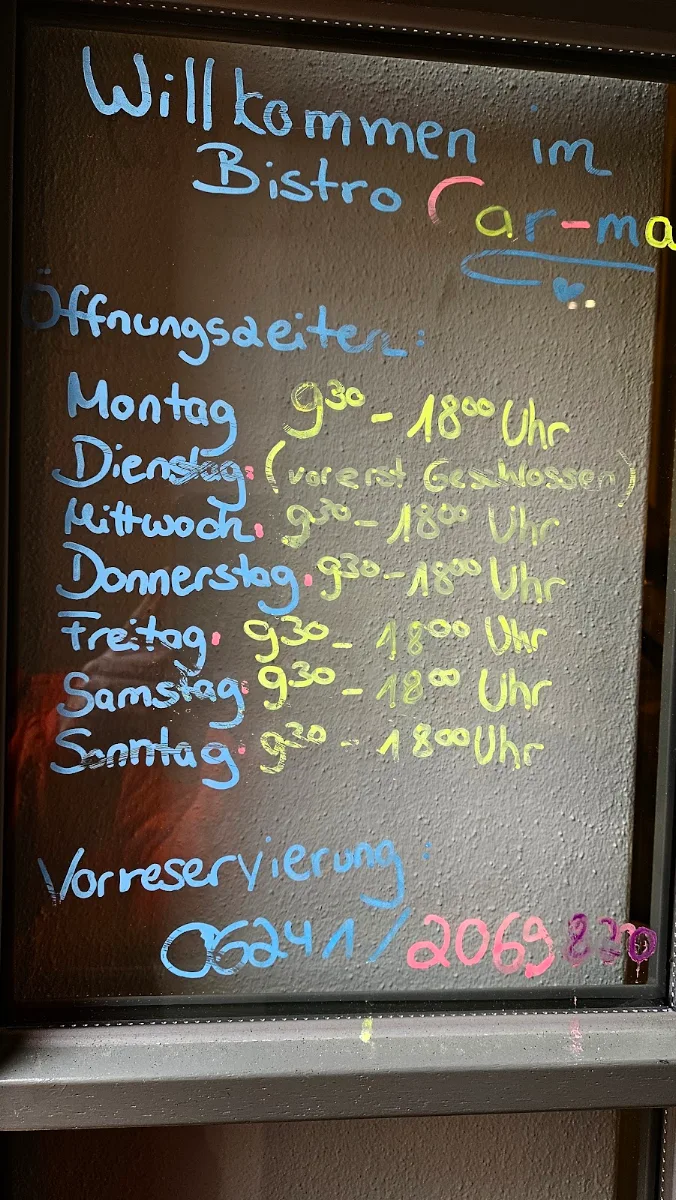 Willkommen im
Bistro Car-ma
Öffnungszeiten:
Montag 9³⁰ - 18⁰⁰ Uhr
Dienstag: (vorerst Geschlossen)
Mittwoch: 9³⁰ - 18⁰⁰ Uhr
Donnerstag: 9³⁰ - 18⁰⁰ Uhr
Freitag: 9³⁰ - 18⁰⁰ Uhr
Samstag: 9³⁰ - 18⁰⁰ Uhr
Sonntag: 9³⁰ - 18⁰⁰ Uhr
Vorreservierung:
06241/2069